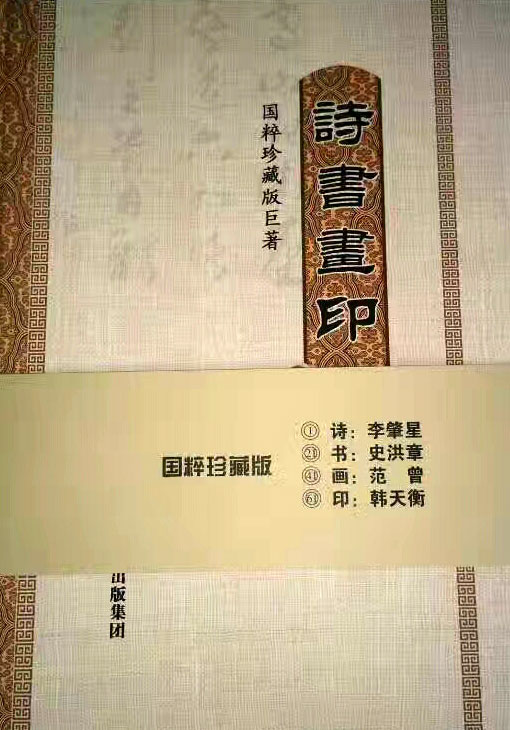 詩書畫印
国粹珍藏版巨著
国粹珍藏版
① 诗：李肇星
㉑ 书：史洪章
㊶ 画：范 曾
63 印：韩天衡
出版集团